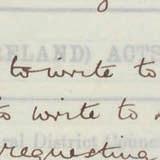 RELAND) ACTS
to write to
to write to
ral District Counc
requesting